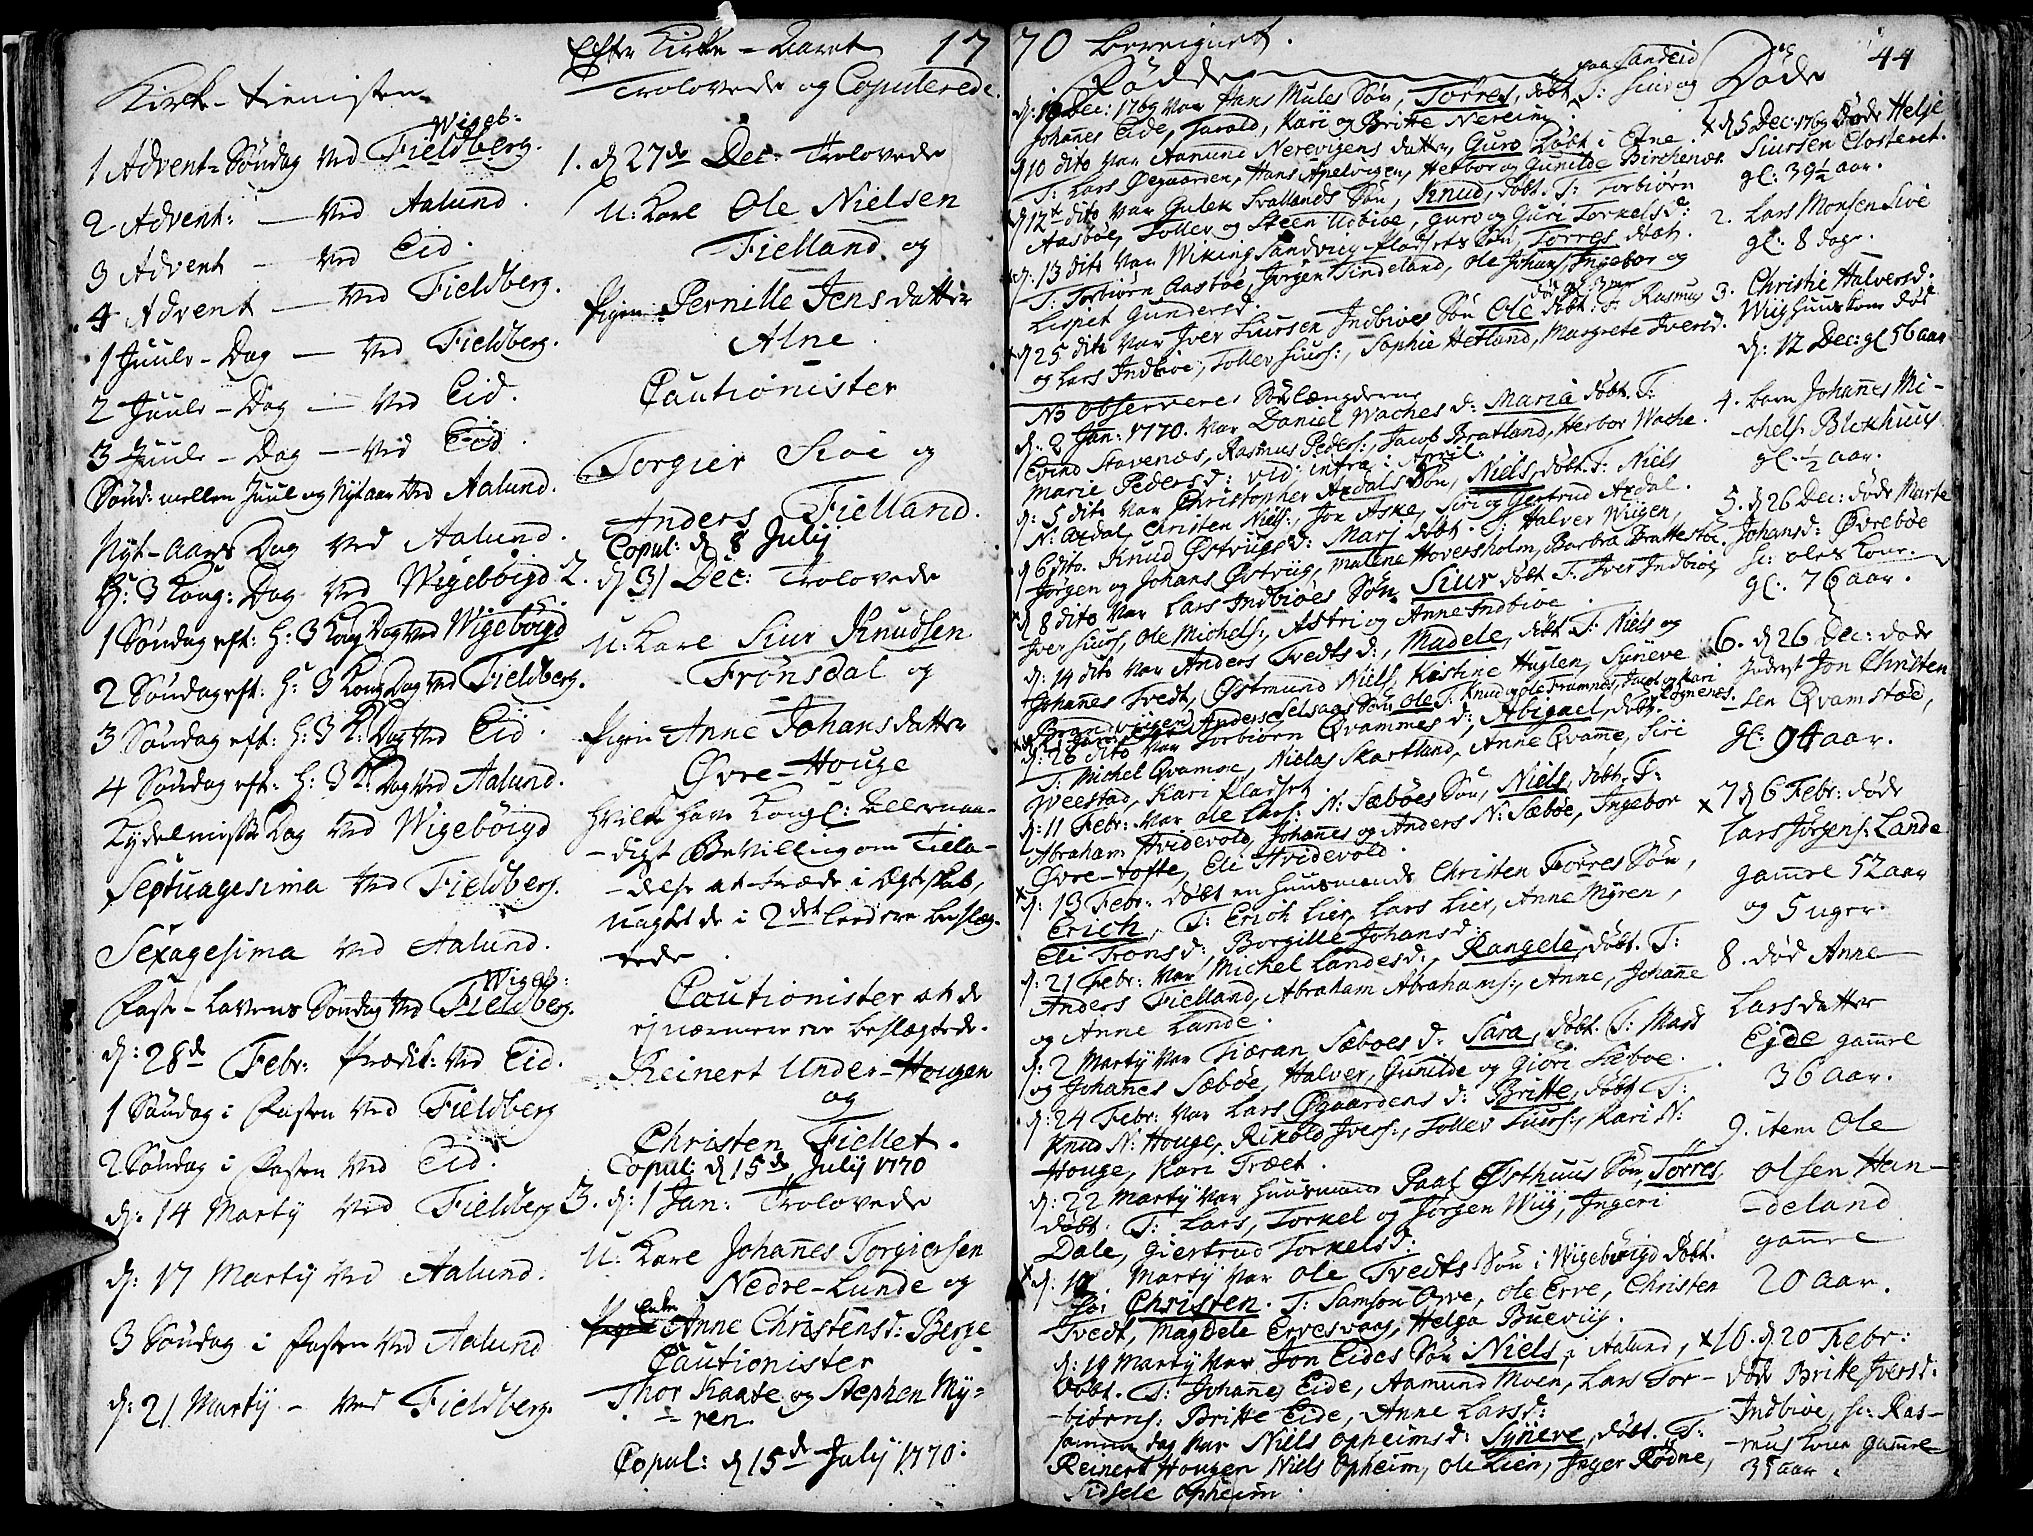 Efter Kirke-Aaret 1770 bereignet.
Kirke-tienisten
1 Advent-Søndag ved Fieldberg. Wigeb:
2 Advent: — ved Aalund.
3 Advent — ved Eid.
4 Advent — ved Fieldberg.
1 Juule-Dag — ved Fieldberg.
2 Juule-Dag — ved Eid.
3 Juule-Dag — ved Eid.
Sønd: mellem Juul og Nyt aar ved Aalund.
Nyt-Aars Dag ved Aalund.
H: 3 Kong: Dag ved Wigebøigd
1 Søndag eft: H: 3 Kong Dag ved Wigebøigd
2 Søndag eft: H: 3 Kong Dag ved Fieldberg.
3 Søndag eft: H: 3 K: Dag ved Eid.
4 Søndag eft: H: 3 K: Dag ved Aalund.
Kydelmisse Dag ved Wigebøigd
Septuagesima ved Fieldberg.
Sexagesima ved Aalund.
Faste-Lavens Søndag ved Fieldberg. Wigeb:
d: 28de Febr: Prædik: ved Eid.
1 Søndag i Fasten ved Fieldberg
2 Søndag i Fasten ved Eid.
d: 14 Martij ved Fieldberg
d: 17 Martij ved Aalund.
3 Søndag i Fasten ved Aalund
d: 21 Martij - ved Fieldberg.
Trolovede og Copulerede.
1. d 27de Dec: Trolovede
U: Karl Ole Nielsen
Fielland og
Pigen Pernille Jens datter
Alne.
Cautionister
Torgier Sioe og
Anders Fielland.
Copul: d 8 Julij
2. d 31 Dec: Trolovede
U: Karl Siur Knudsen
Frønsdal og
Pigen Anne Johans datter
Øvre-Houge
hvilke have Kongl: Allernaa-
-digst Bevilling om Tilla-
-delse at træde i Egteskab,
uagtet de i 2det leed ere beslæg-
tede.
Cautionister at de
ej nærmere ere beslægtede.
Reinert Under-Hougen
og
Christen Fiellet.
Copul: d 15de Julij 1770
3. d: 1 Jan: Trolovede
U: Karl Johannes Torgiersen
Nedre-Lunde og
Enke Anne Christensd: Berge
Cautionister
Thor Kaate og Stephen My-
-ren.
Copul: d 15de Julij 1770.
Fødde
d: 10 Dec: 1769 var Hans Mules Søn, Torres, døbt paa Sandeid T: Siur og
Johannes Eide, Tarald, Kari og Britte Nereim.
d 10 dito var Aamund Nerevigens datter, Guro døbt i Etne
T: Lars Øegaarden, Hans Apelvigen, Herbor og Gunilde Birchenæs
d 12te dito var Gulek Svallands Søn, Knud, døbt. T: Torbiørn
Aasbøe, Tollev og Steen Udbioe, Guro og Guri Torkelsd:
d. 13 dito var Wiking Sandvig Pladsets Søn, Torres døbt.
T: Torbiørn Aasbøe, Jørgen Tindeland, Ole Johans, Ingebor og
Lispet Gundersd
d 25 dito var Iver Siursen Indbioes Søn Ole døbt. T: Rasmus
og Lars Indbioe, Tollev Siurs:, Sophie Hetland, Margrete Iversd.
NB observeres
d: 2 Jan: 1770. var Daniel Waches d: Maria døbt. T:
Evind Stavenæs, Rasmus Peders:, Jacob Bratland, Herbor Wache.
Marie Pedersd: vid: intra i April.
d: 5 dito var Christopher Axdals Søn, Niels, døbt. T: Niels
N: Axdal, Christen Niels:, Jon Aske, Siri og Giertrud Axdal.
d 6 dito. Knud Østvigs d: Mari døbt. T: Halver Wiigen,
Jørgen og Johans Østviig, Malene Hoversholm, Barbra Brattestøe.
d 8 dito var Lars Indbioes Søn, Siur døbt T: Iver Indbioe
Iver Siurs, Ole Michels:, Astri og Anne Indbioe.
d: 14 dito var Anders Tvedts d:, Madele, døbt T: Niels og
Johannes Tvedt, Østmund Niels, Kirstine Huglen, Syneve
Anders Selsaas Søn Ole T: Knud og Ole Framnes,
d: 26 dito var Torbiørn Qvammes d: Abigael, døbt.
T: Michel Qvamme, Nielas Skartland, Anne Qvame, Siri
Weestad, Kari Pladset.
d: 11 Febr: var Ole Lars: N: Sæbøes Søn, Niels, døbt. T:
Abraham Hvidevold, Johannes og Anders N: Sæbøe, Ingebor
Øvre-tofte, Eli Hvidevold.
d: 13 Febr: døbt en Huusmands Christen Torres Søn,
Erich, T: Erich Lier, Lars Lier, Anne Myren,
Eli Tronsd: Borgille Johansd:
d: 21 Febr: var Michel Landes d:, Rangele, døbt. T:
Anders Fielland, Abraham Abrahams:, Anne, Johanne
og Anne Lande.
d: 2 Martij var Tiæran Sæbøes d: Sara, døbt. T: Mads
og Johannes Sæbøe, Halver, Gunilde og Giøri Sæbøe.
d: 24 Febr: var Lars Øgaardens d: Britte, døbt T:
Knud N: Houge, Rikold Ivers:, Tollev Siurs:, Kari N:
Houge, Kari Træet.
d: 22 Martij var Huusmand Paal Østhuus Søn, Torres,
døbt. T: Lars, Torkel og Jørgen Wiig, Ingeri
Dale, Giertrud Torkelsd:
Martij var Ole Tvedts Søn i Wigebøigd døbt.
Christen. T: Samson Ørve, Ole Erve, Christen
Tvedt, Magdele Ervesvaag, Helga Bueviig.
d: 19 Martij var Jon Eides Søn Niels i Aalund,
døbt. T: Johannes Eide, Aamund Moen, Lars Tor-
-biørns: Britte Eide, Anne Larsd:
samme dag var Niels Opheims d: Syneve, døbt. T:
Reinert Hougen Niels Opheim, Ole Lien, Inger Rødne,
Sidsele Opheim.
Døde 44
d 5 Dec: 1769 døde Helje
Siursen Closteret.
gl: 39½ aar.
2. Lars Monsen Sioe
gl: 8 dage.
3. Christie Halversd:
Wiig huuskone død
d: 12 Dec: gl 56 aar
4. barn Johannes Mi-
-chels: Birkhuus
gl. ½ aar.
5. d 26 Dec: døde Marte
Johansd: Øvrebøe
sc: Oles kone.
gl: 76 aar.
6. d 26 Dec: døde
Jon Christen
-sen Qvamstøe,
gl: 94 aar.
7 d 6 Febr: døde
Lars Jørgens: Lande
gamle 52 aar
og 5 uger.
8. død Anne
Larsdatter
Eide gamle
36 aar.
9. item Ole
Olsen Han-
-deland
gamle
20 aar.
10. d. 20 Febr:
døde Britte Iversd:
Indbioe, sc: Ras-
-mus kone gamle
35 aar.